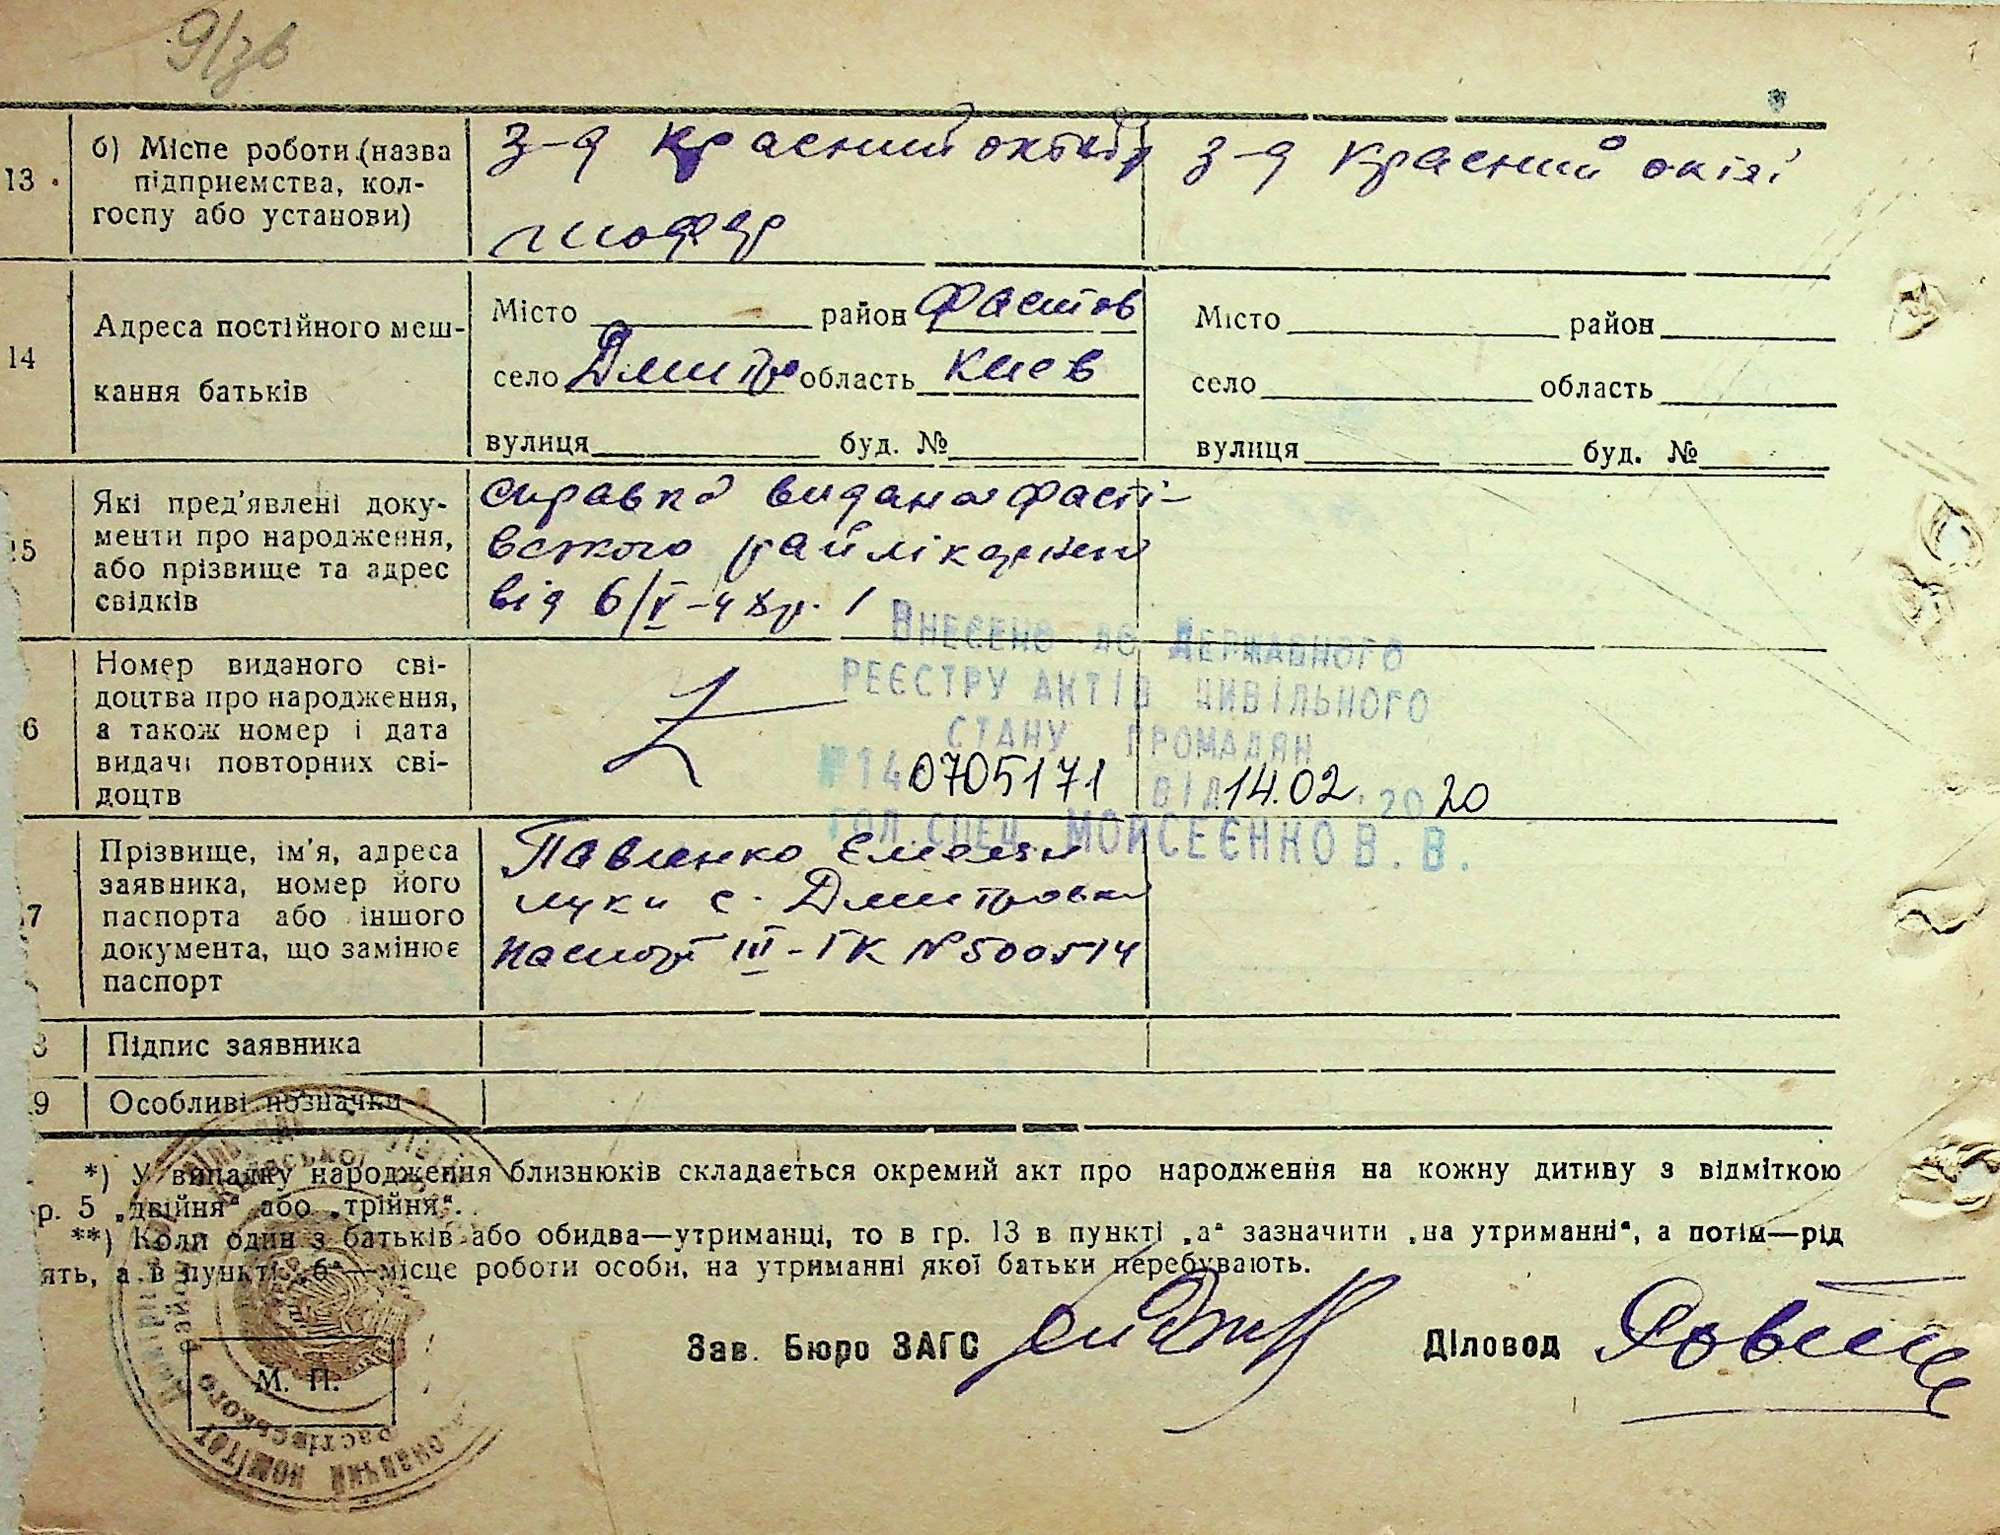 9/зв
13 б) Місце роботи (назва підприємства, колгоспу або установи)
з-д Красний октябр
шофер
з-д Красний октя
14 Адреса постійного мешкання батьків
Місто район Фастов
село Дмитро область Киев
вулиця буд. №
Місто район
село область
вулиця буд. №
15 Які пред'явлені документи про народження, або прізвище та адрес свідків
справка видана Фасті-
вского райлікарнею
від 6/V-48р.
ВНЕСЕНО ДО ДЕРЖАВНОГО
РЕЄСТРУ АКТІВ ЦИВІЛЬНОГО
СТАНУ ГРОМАДЯН
№140705171 ВІД 14.02.2020
ГОЛ.СПЕЦ. МОЙСЕЄНКО В.В.
6 Номер виданого свідоцтва про народження, а також номер і дата видачі повторних свідоцтв
7 Прізвище, ім'я, адреса заявника, номер його паспорта або іншого документа, що замінює паспорт
Павленко Емелян
Луки с. Дмитровка
паспорт III-ГК №500514
8 Підпис заявника
9 Особливі позначки
*) У випадку народження близнюків складається окремий акт про народження на кожну дитину з відміткою
р. 5 „двійня“ або „трійня“.
**) Коли один з батьків або обидва—утриманці, то в гр. 13 в пункті „а“ зазначити „на утриманні“, а потім—рід
ять, а в пункті „б“—місце роботи особи, на утриманні якої батьки перебувають.
Зав. Бюро ЗАГС
Діловод
М. П.